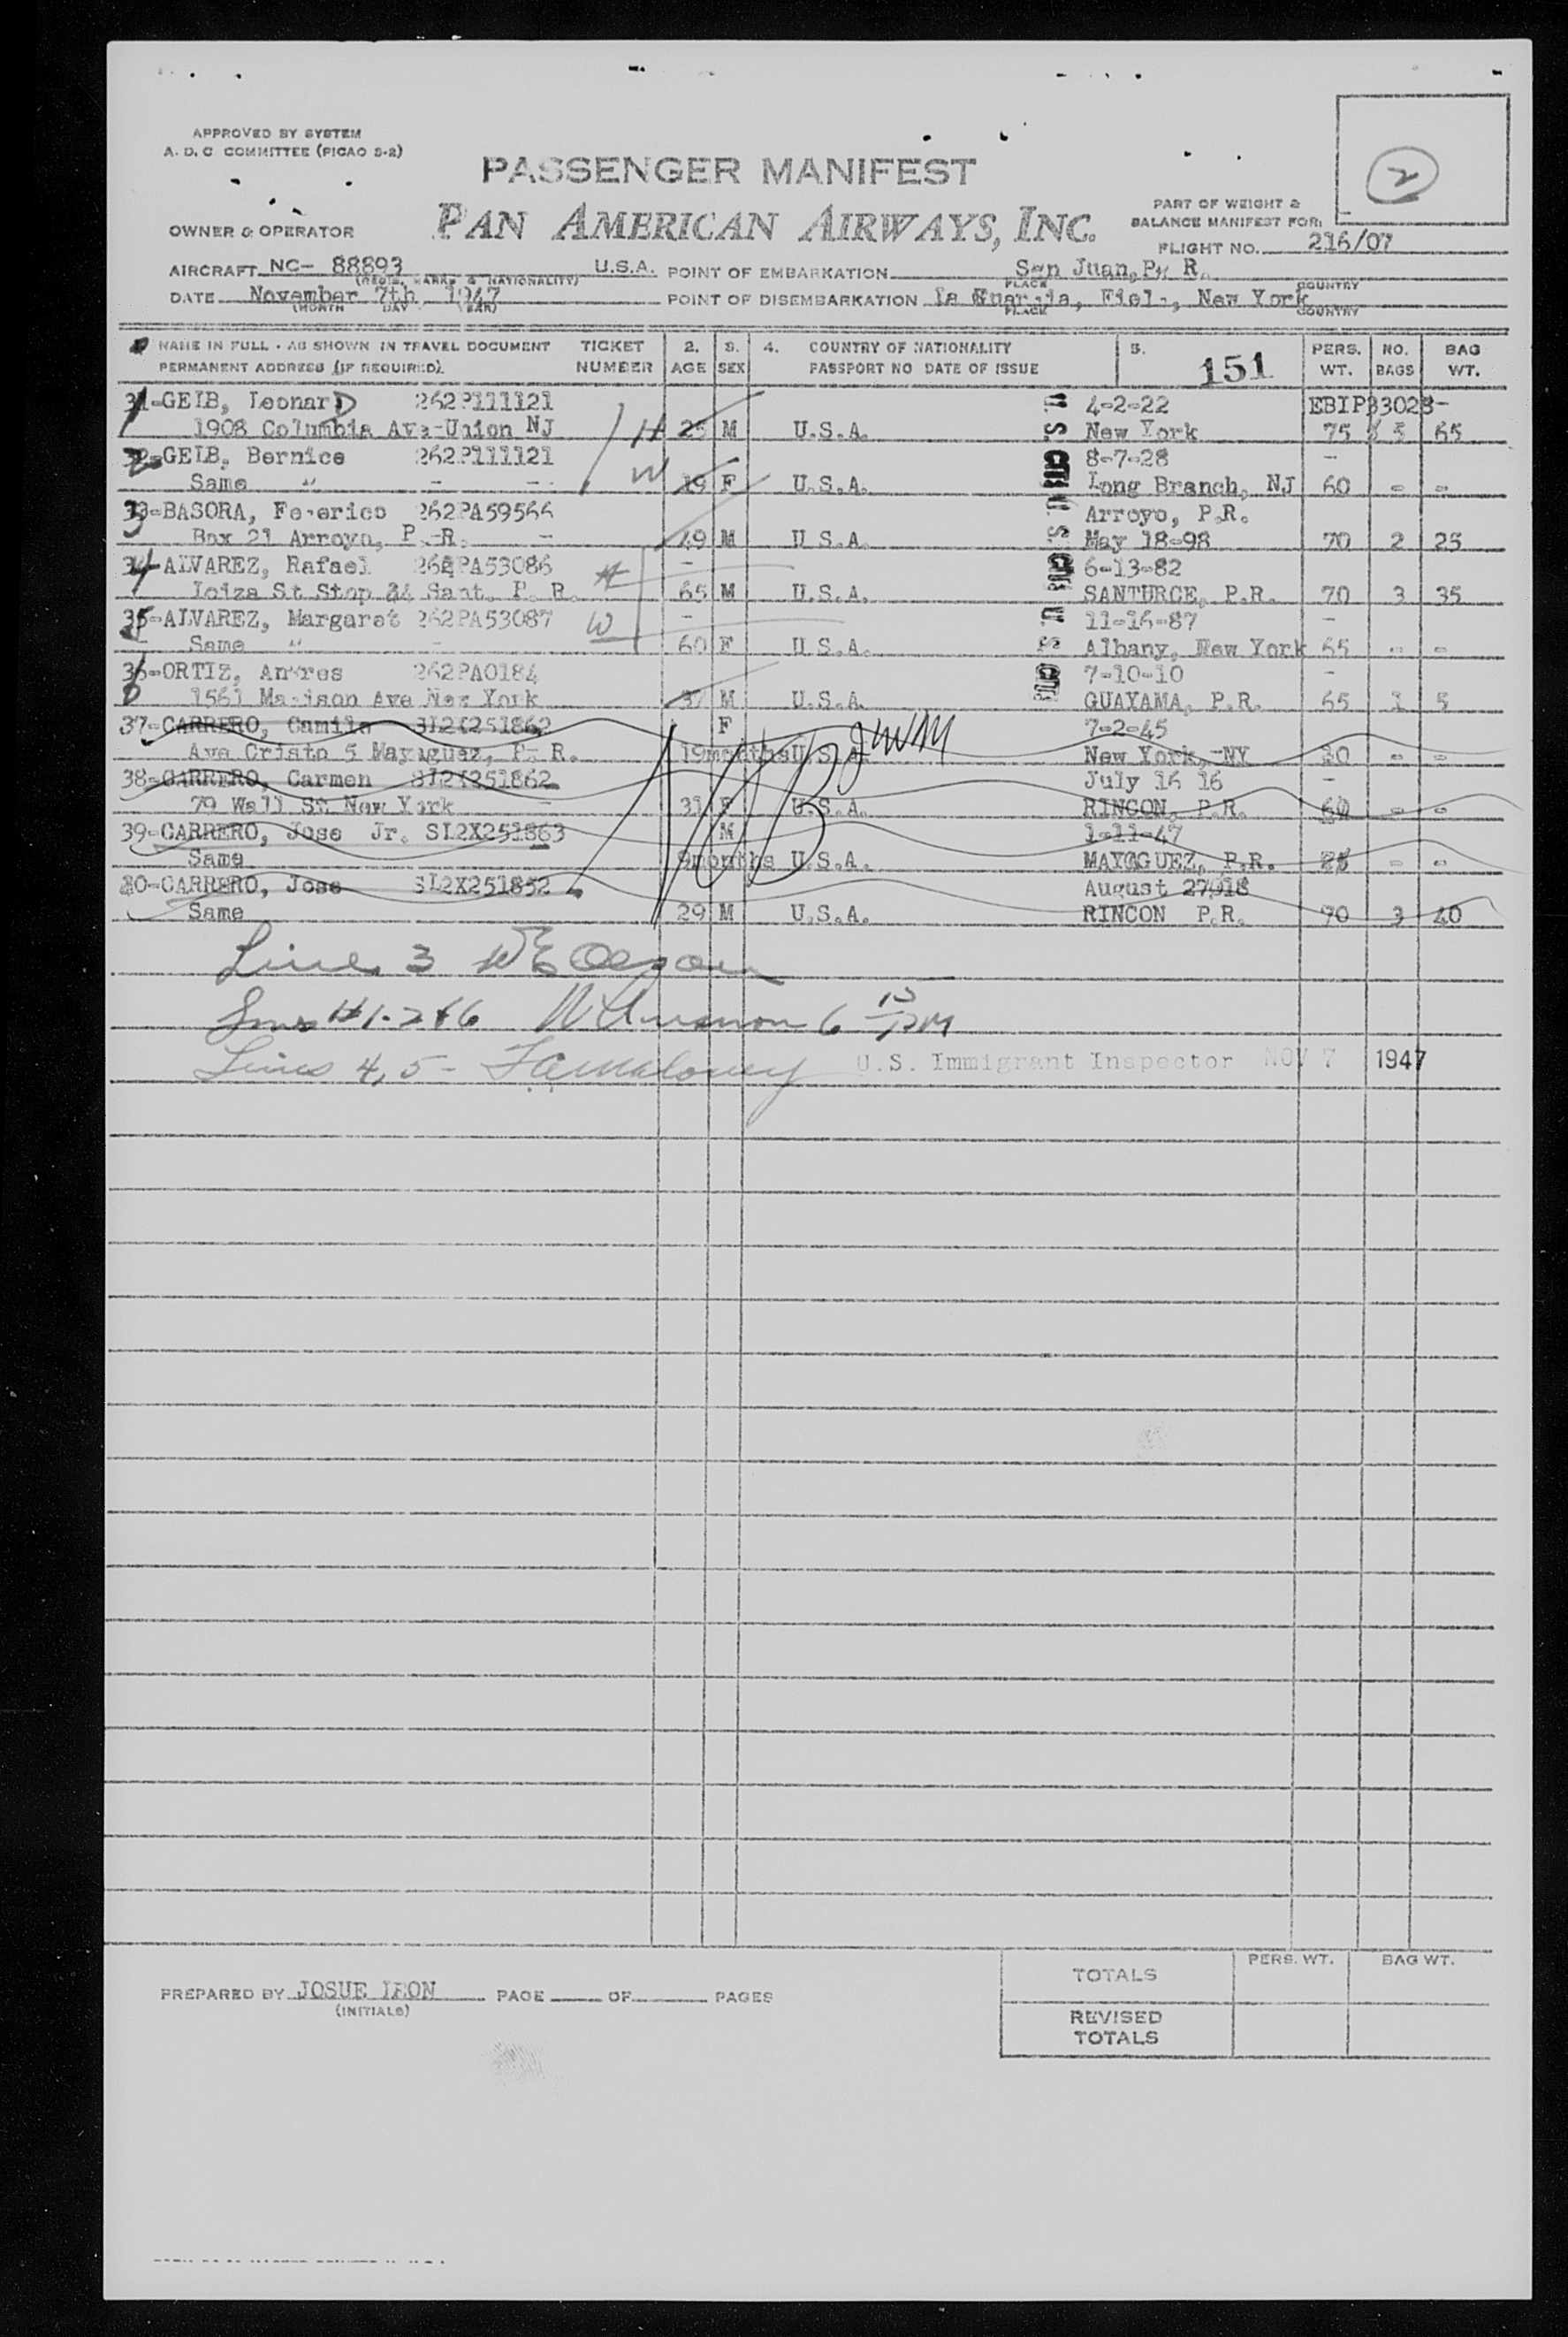 APPROVED BY SYSTEM
A. D. C COMMITTEE (PICAO S-2)
PASSENGER MANIFEST
2
PART OF WEIGHT &
OWNER & OPERATOR PAN AMERICAN AIRWAYS, INC. BALANCE MANIFEST FOR:
FLIGHT NO. 216/07
AIRCRAFT NC- 88893 U.S.A. POINT OF EMBARKATION San Juan, P. R.
(REGIS. MARKS & NATIONALITY) PLACE COUNTRY
DATE November 7th 1947 POINT OF DISEMBARKATION La Guardia, Field, New York
(MONTH DAY YEAR) PLACE COUNTRY
NAME IN FULL - AS SHOWN IN TRAVEL DOCUMENT TICKET 2. 3. 4. COUNTRY OF NATIONALITY 5. PERS. NO. BAG
PERMANENT ADDRESS (IF REQUIRED). NUMBER AGE SEX PASSPORT NO DATE OF ISSUE 151 WT. BAGS WT.
31-GEIB, Leonard 262P111121 4-2-22 EBIP33023-
1908 Columbia Ave-Union NJ H 25 M U.S.A. New York 75 5 65
32-GEIB, Bernice 262P111121 8-7-28 -
Same " - - W 19 F U.S.A. Long Branch, NJ 60 - -
33-BASORA, Federico 262PA59566 Arroyo, P.R.
Box 21 Arroyo, P.R. - 49 M U S.A. May 18-98 70 2 25
34-ALVAREZ, Rafael 262PA53086 - 6-13-82
Loiza St Stop 34 Sant. P. R. H 65 M U.S.A. SANTURCE, P.R. 70 3 35
35-ALVAREZ, Margaret 262PA53087 - 11-16-87 -
Same " W 60 F U.S.A. Albany, New York 65 - -
36-ORTIZ, Andres 262PA0184 7-10-10 -
1561 Madison Ave New York 37 M U.S.A. GUAYAMA, P.R. 65 1 5
37-CARRERO, Camila SI2X251862 F 7-2-45
Ave Cristo 5 Mayaguez, P. R. 19months U.S.A. New York, NY 30 - -
38-CARRERO, Carmen SI2X251862 July 16 16 -
79 Wall St New York - 31 F U.S.A. RINCON, P.R. 60 - -
39-CARRERO, Jose Jr. SI2X251863 M 1-11-47
Same 9months U.S.A. MAYAGUEZ, P.R. 25 - -
40-CARRERO, Jose SI2X251852 August 27918
Same 29 M U.S.A. RINCON P.R. 70 3 40
NOB
Line 3
Lines #1-2 & 6 6 15 PM
Lines 4, 5 - F A Maloney U.S. Immigrant Inspector NOV 7 1947
PREPARED BY JOSUE LEON PAGE OF PAGES
(INITIALS)
TOTALS PERS. WT. BAG WT.
REVISED
TOTALS